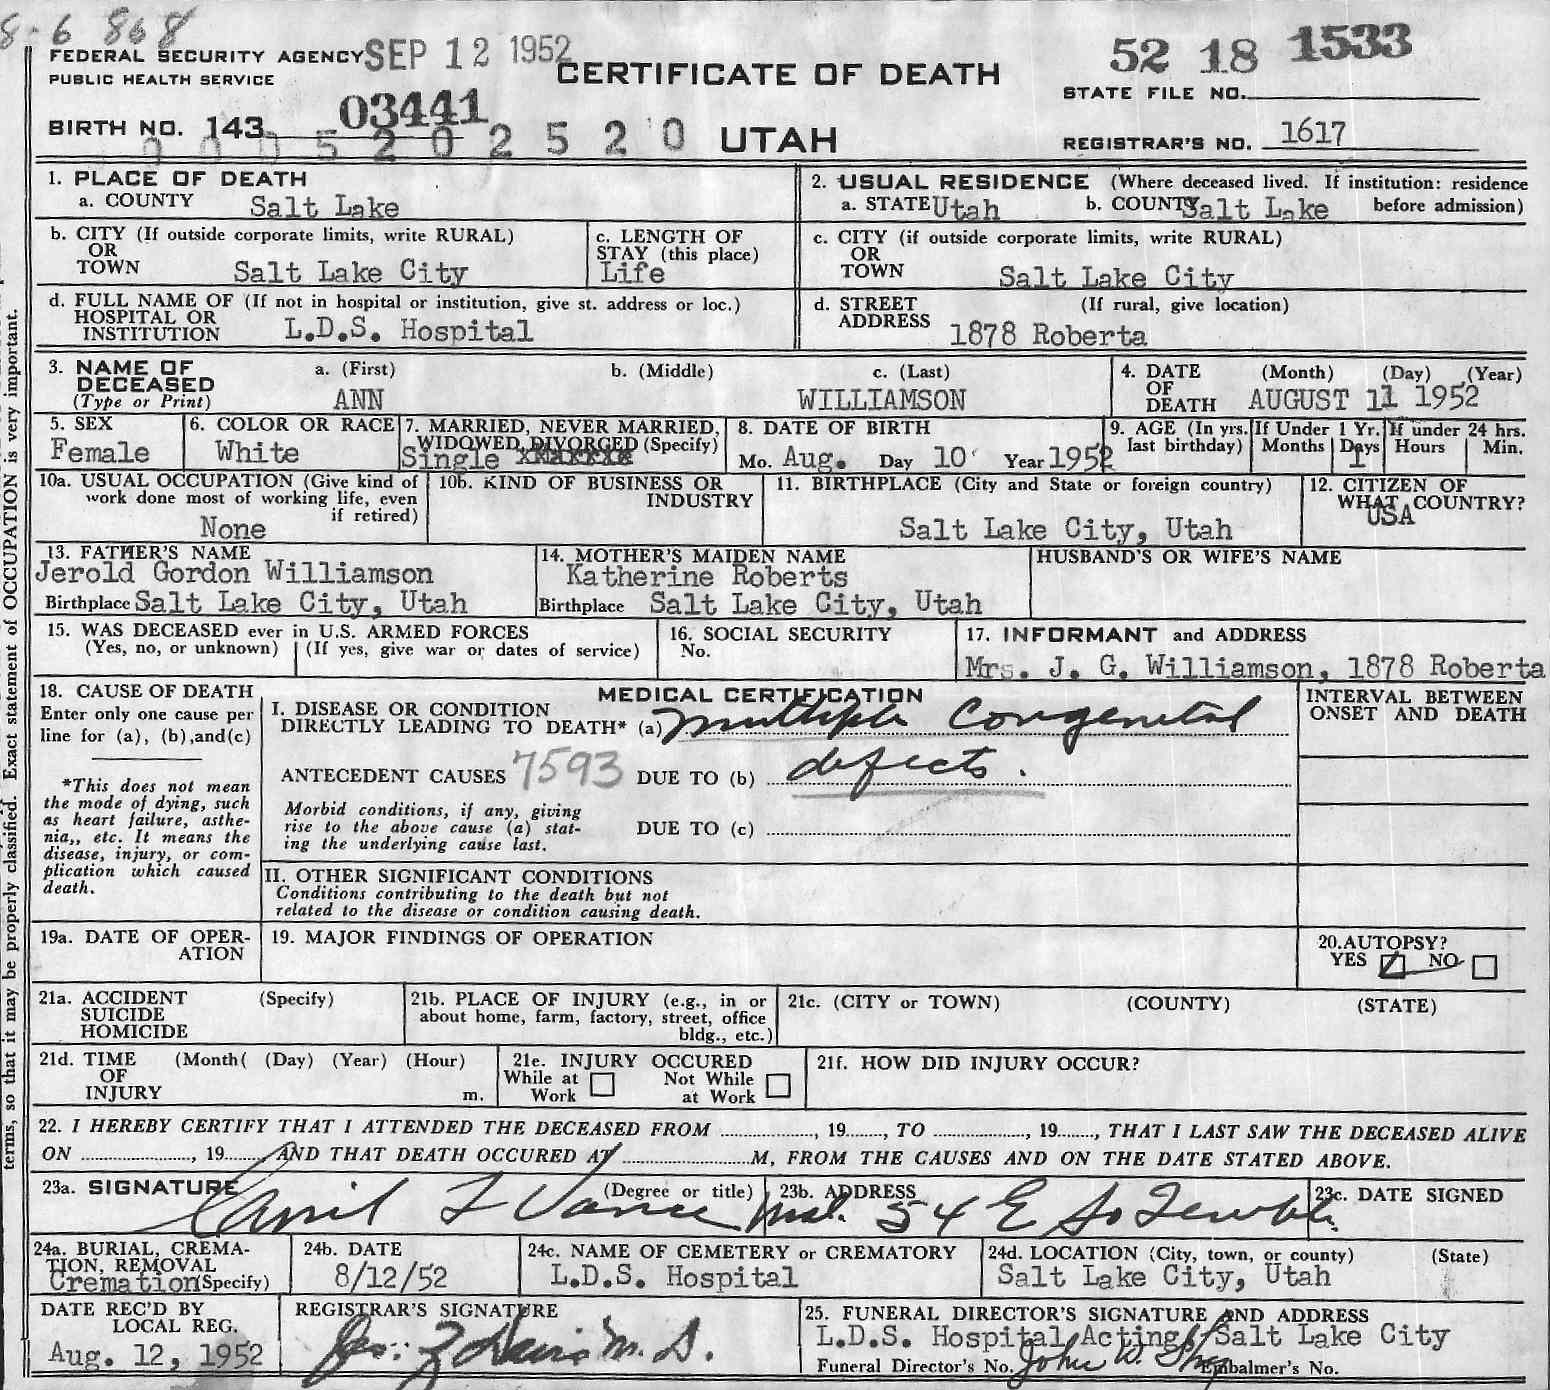 8-6 868
FEDERAL SECURITY AGENCY SEP 12 1952 CERTIFICATE OF DEATH 52 18 1533
PUBLIC HEALTH SERVICE
STATE FILE NO.
BIRTH NO. 143 03441 UTAH
5 2 0 2 5 2 0
REGISTRAR'S NO. 1617
1. PLACE OF DEATH
a. COUNTY Salt Lake
2. USUAL RESIDENCE (Where deceased lived. If institution: residence before admission)
a. STATE Utah b. COUNTY Salt Lake
b. CITY (If outside corporate limits, write RURAL)
OR
TOWN Salt Lake City
c. LENGTH OF
STAY (this place)
Life
c. CITY (if outside corporate limits, write RURAL)
OR
TOWN Salt Lake City
d. FULL NAME OF (If not in hospital or institution, give st. address or loc.)
HOSPITAL OR
INSTITUTION L.D.S. Hospital
d. STREET (If rural, give location)
ADDRESS 1878 Roberta
3. NAME OF a. (First) b. (Middle) c. (Last)
DECEASED
(Type or Print) ANN WILLIAMSON
4. DATE (Month) (Day) (Year)
OF
DEATH AUGUST 11 1952
5. SEX
Female
6. COLOR OR RACE
White
7. MARRIED, NEVER MARRIED,
WIDOWED, DIVORCED (Specify)
Single
8. DATE OF BIRTH
Mo. Aug. Day 10 Year 1952
9. AGE (In yrs. last birthday)
If Under 1 Yr.
Months Days
1
If under 24 hrs.
Hours Min.
10a. USUAL OCCUPATION (Give kind of
work done most of working life, even
if retired)
None
10b. KIND OF BUSINESS OR
INDUSTRY
11. BIRTHPLACE (City and State or foreign country)
Salt Lake City, Utah
12. CITIZEN OF
WHAT COUNTRY?
USA
13. FATHER'S NAME
Jerold Gordon Williamson
Birthplace Salt Lake City, Utah
14. MOTHER'S MAIDEN NAME
Katherine Roberts
Birthplace Salt Lake City, Utah
HUSBAND'S OR WIFE'S NAME
15. WAS DECEASED ever in U.S. ARMED FORCES
(Yes, no, or unknown) (If yes, give war or dates of service)
16. SOCIAL SECURITY
No.
17. INFORMANT and ADDRESS
Mrs. J. G. Williamson, 1878 Roberta
18. CAUSE OF DEATH
Enter only one cause per
line for (a), (b), and (c)
*This does not mean
the mode of dying, such
as heart failure, asthe-
nia,, etc. It means the
disease, injury, or com-
plication which caused
death.
MEDICAL CERTIFICATION
I. DISEASE OR CONDITION
DIRECTLY LEADING TO DEATH* (a) multiple congenital
ANTECEDENT CAUSES 7593 DUE TO (b) defects.
Morbid conditions, if any, giving
rise to the above cause (a) stat-
ing the underlying cause last.
DUE TO (c)
INTERVAL BETWEEN
ONSET AND DEATH
II. OTHER SIGNIFICANT CONDITIONS
Conditions contributing to the death but not
related to the disease or condition causing death.
19a. DATE OF OPER-
ATION
19. MAJOR FINDINGS OF OPERATION
20. AUTOPSY?
YES NO
21a. ACCIDENT (Specify)
SUICIDE
HOMICIDE
21b. PLACE OF INJURY (e.g., in or
about home, farm, factory, street, office
bldg., etc.)
21c. (CITY or TOWN) (COUNTY) (STATE)
21d. TIME (Month( (Day) (Year) (Hour)
OF
INJURY m.
21e. INJURY OCCURED
While at Work Not While at Work
21f. HOW DID INJURY OCCUR?
22. I HEREBY CERTIFY THAT I ATTENDED THE DECEASED FROM ..............., 19......, TO ..............., 19......, THAT I LAST SAW THE DECEASED ALIVE
ON ..............., 19......, AND THAT DEATH OCCURED AT ....................M, FROM THE CAUSES AND ON THE DATE STATED ABOVE.
23a. SIGNATURE (Degree or title)
Vance Md.
23b. ADDRESS
54 E So Temple
23c. DATE SIGNED
24a. BURIAL, CREMA-
TION, REMOVAL
Cremation (Specify)
24b. DATE
8/12/52
24c. NAME OF CEMETERY or CREMATORY
L.D.S. Hospital
24d. LOCATION (City, town, or county) (State)
Salt Lake City, Utah
DATE REC'D BY
LOCAL REG.
Aug. 12, 1952
REGISTRAR'S SIGNATURE
M.D.
25. FUNERAL DIRECTOR'S SIGNATURE AND ADDRESS
L.D.S. Hospital Acting Salt Lake City
Funeral Director's No. John W. Embalmer's No.
terms, so that it may be properly classified. Exact statement of OCCUPATION is very important.